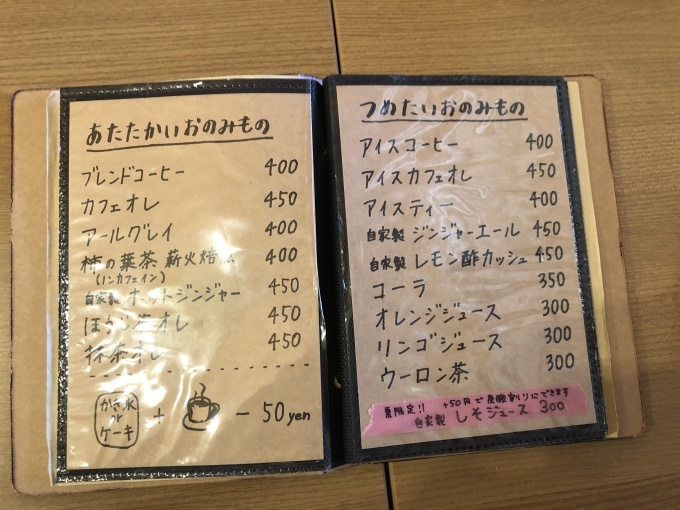 あたたかいおのみもの
ブレンドコーヒー 400
カフェオレ 450
アールグレイ 400
柿の葉茶 薪火焙 400
(ノンカフェイン)
自家製 ホットジンジャー 450
ほうじ茶オレ 450
抹茶オレ 450
かき氷 or ケーキ + - 50yen
つめたいおのみもの
アイスコーヒー 400
アイスカフェオレ 450
アイスティー 400
自家製 ジンジャーエール 450
自家製 レモン酢カッシュ 450
コーラ 350
オレンジジュース 300
リンゴジュース 300
ウーロン茶 300
夏限定!! +50円で炭酸割りにできます
自家製 しそジュース 300